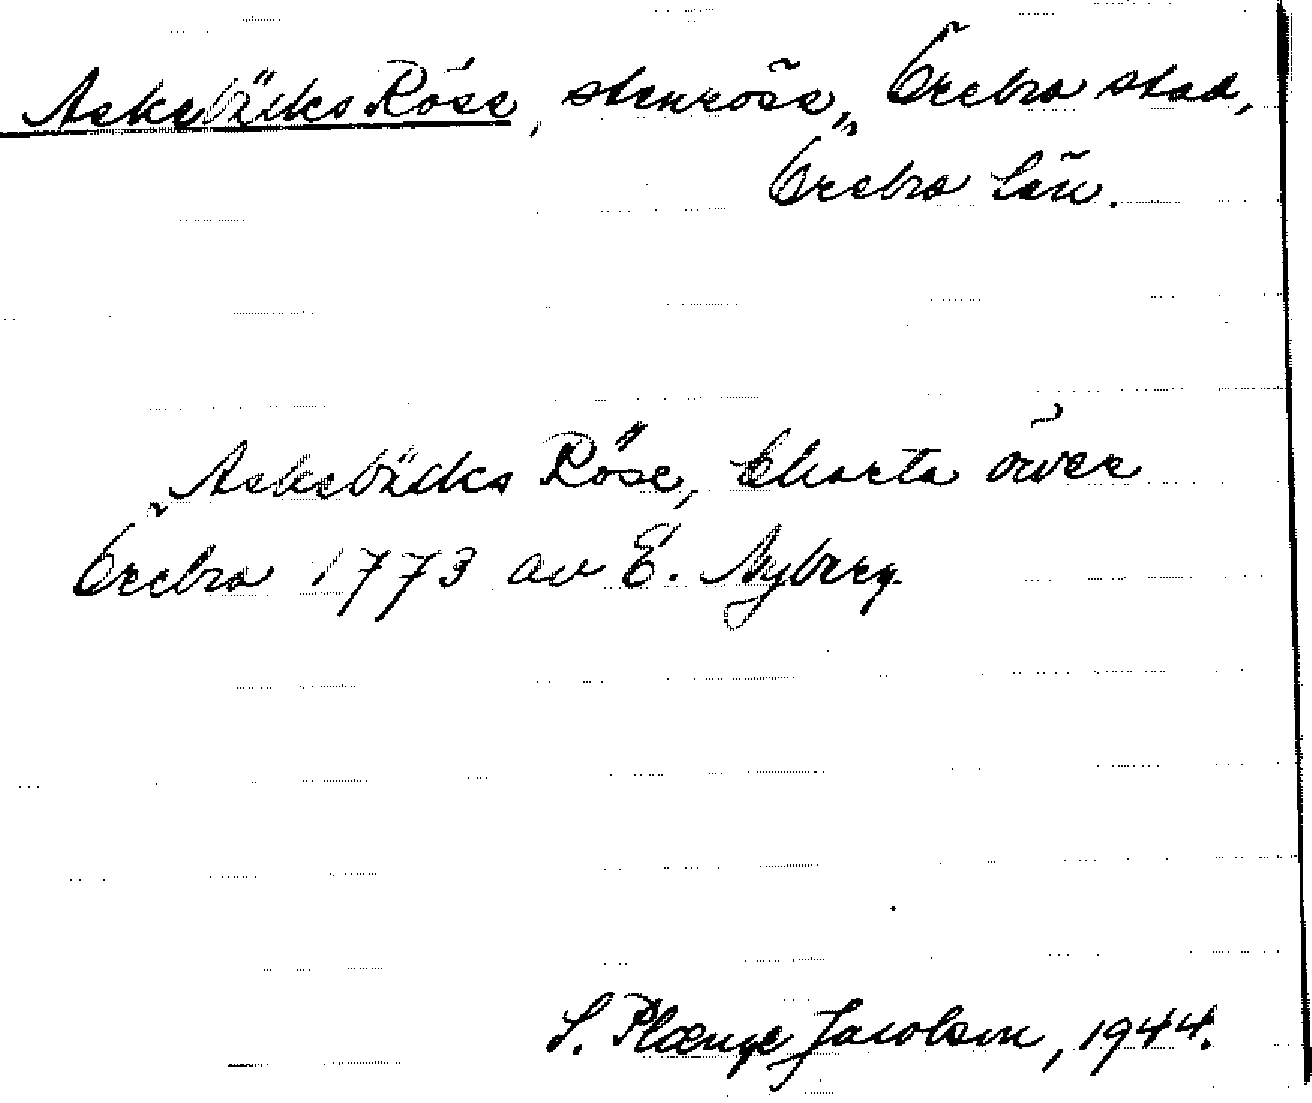 Askebäcks Röse, stenröse, Örebro stad,
Örebro län.
Askebäcks Röse, Charta över
Örebro 1773 av E. Nyberg
S. Plænge Jacobson, 1944.